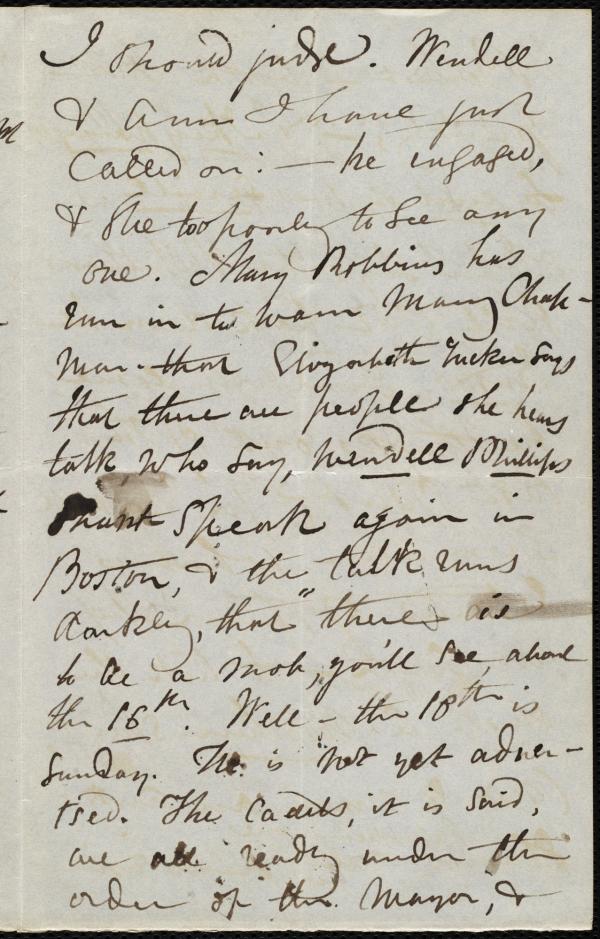 I should judge. Wendell
& Ann I have just
called on: — he engaged,
& she too poorly to see any
one. Mary Robbins has
run in to warn Mary Chap-
man - that Elizabeth Tucker says
that there are people she hears
talk, who say, Wendell Phillips
shant speak again in
Boston, & the talk runs
darkly, that "there is
to be a mob, you'll see, about
the 16th. Well - the 18th is
Sunday. He is not yet adver-
tised. The Cadets, it is said,
are all ready under the
order of the Mayor, &